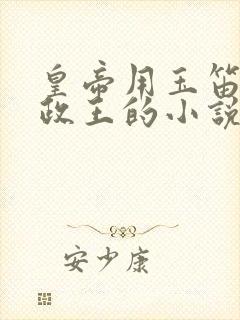 皇帝用玉笛
政王的小說
安少康